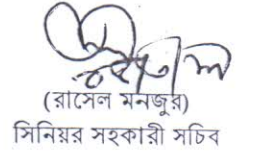 (রাসেল মনজুর)
সিনিয়র সহকারী সচিব